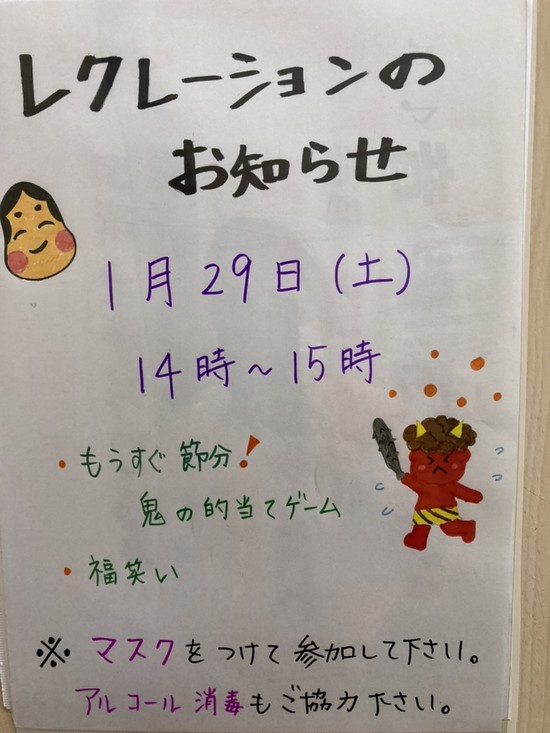 レクレーションの
お知らせ
1月29日(土)
14時～15時
・もうすぐ節分!
鬼の的当てゲーム
・福笑い
※マスクをつけて参加して下さい。
アルコール消毒もご協力下さい。